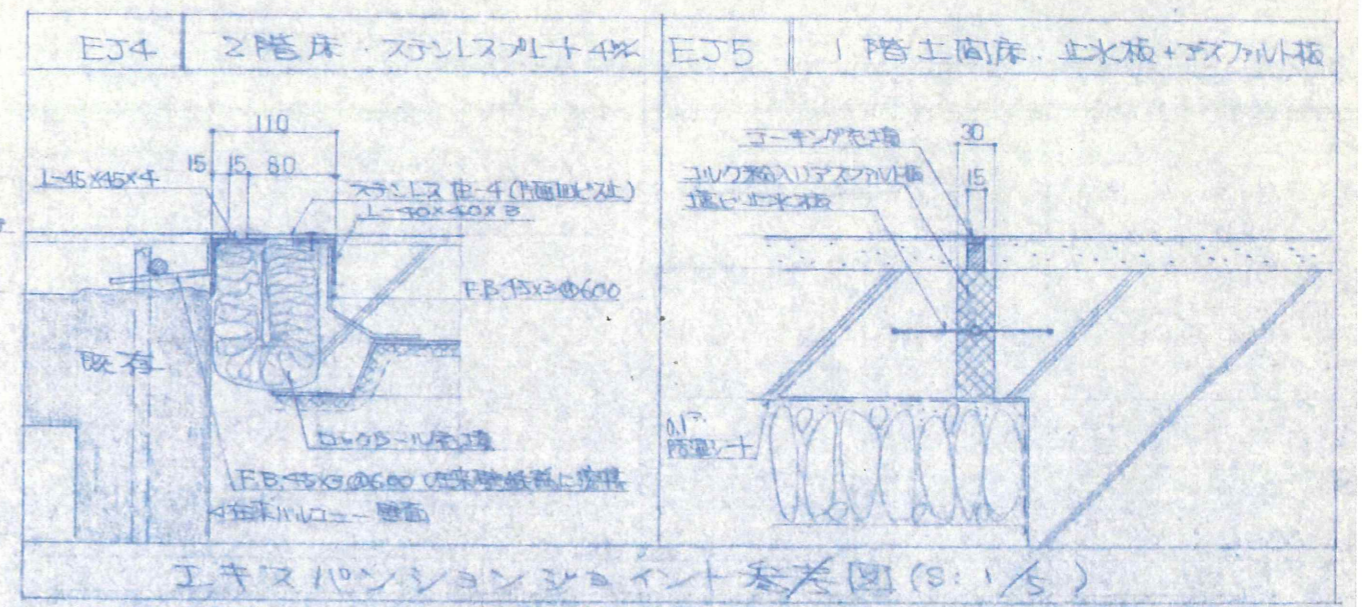 EJ4 2階床・ステンレスプレート4㎜
EJ5 1階土間床・止水板+アスファルト板
110
15 15 80
L-45×45×4
L-40×40×3
F.B.45×3@600
既存
ロックウール充填
F.B.45×3@600
在来バルコニー壁面
コーキング充填
コルク粉入リアスファルト板
塩ビ止水板
30
15
0.1
防湿シート
エキスパンションジョイント参考図(S:1/5)